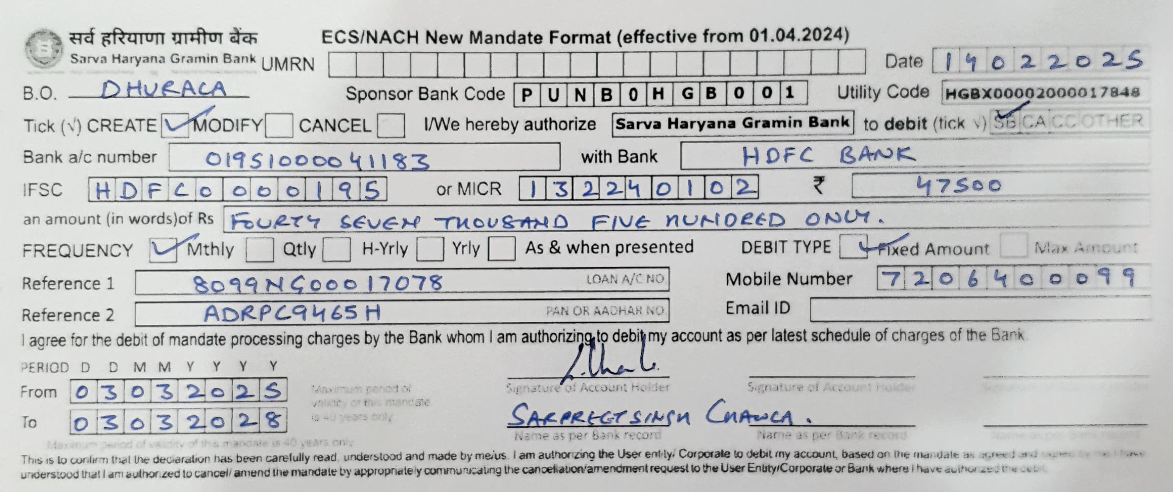 सर्व हरियाणा ग्रामीण बैंक ECS/NACH New Mandate Format (effective from 01.04.2024)
Sarva Haryana Gramin Bank UMRN Date 14022025
B.O. DHURALA Sponsor Bank Code PUNB0HGB001 Utility Code HGBX00002000017848
Tick (√) CREATE ✓ MODIFY CANCEL I/We hereby authorize Sarva Haryana Gramin Bank to debit (tick √) SB ✓ CA CC OTHER
Bank a/c number 01951000041183 with Bank HDFC BANK
IFSC HDFC0000195 or MICR 132240102 ₹ 47500
an amount (in words)of Rs FOURTY SEVEN THOUSAND FIVE HUNDERED ONLY.
FREQUENCY ✓ Mthly Qtly H-Yrly Yrly As & when presented DEBIT TYPE ✓ Fixed Amount Max Amount
Reference 1 8099NG00017078 LOAN A/C NO Mobile Number 7206400099
Reference 2 ADRPC9465H PAN OR AADHAR NO. Email ID
I agree for the debit of mandate processing charges by the Bank whom I am authorizing to debit my account as per latest schedule of charges of the Bank.
PERIOD D D M M Y Y Y Y
From 03032025 Maximum period of validity of this mandate is 40 years only Signature of Account Holder Signature of Account Holder
To 03032028 SARPREETSINGH CHAWLA.
Name as per Bank record Name as per Bank record
Maximum period of validity of this mandate is 40 years only
This is to confirm that the declaration has been carefully read, understood and made by me/us. I am authorizing the User entity/ Corporate to debit my account, based on the mandate as agreed and signed by me. I have
understood that I am authorized to cancel/ amend the mandate by appropriately communicating the cancellation/amendment request to the User Entity/Corporate or Bank where I have authorized the debit.